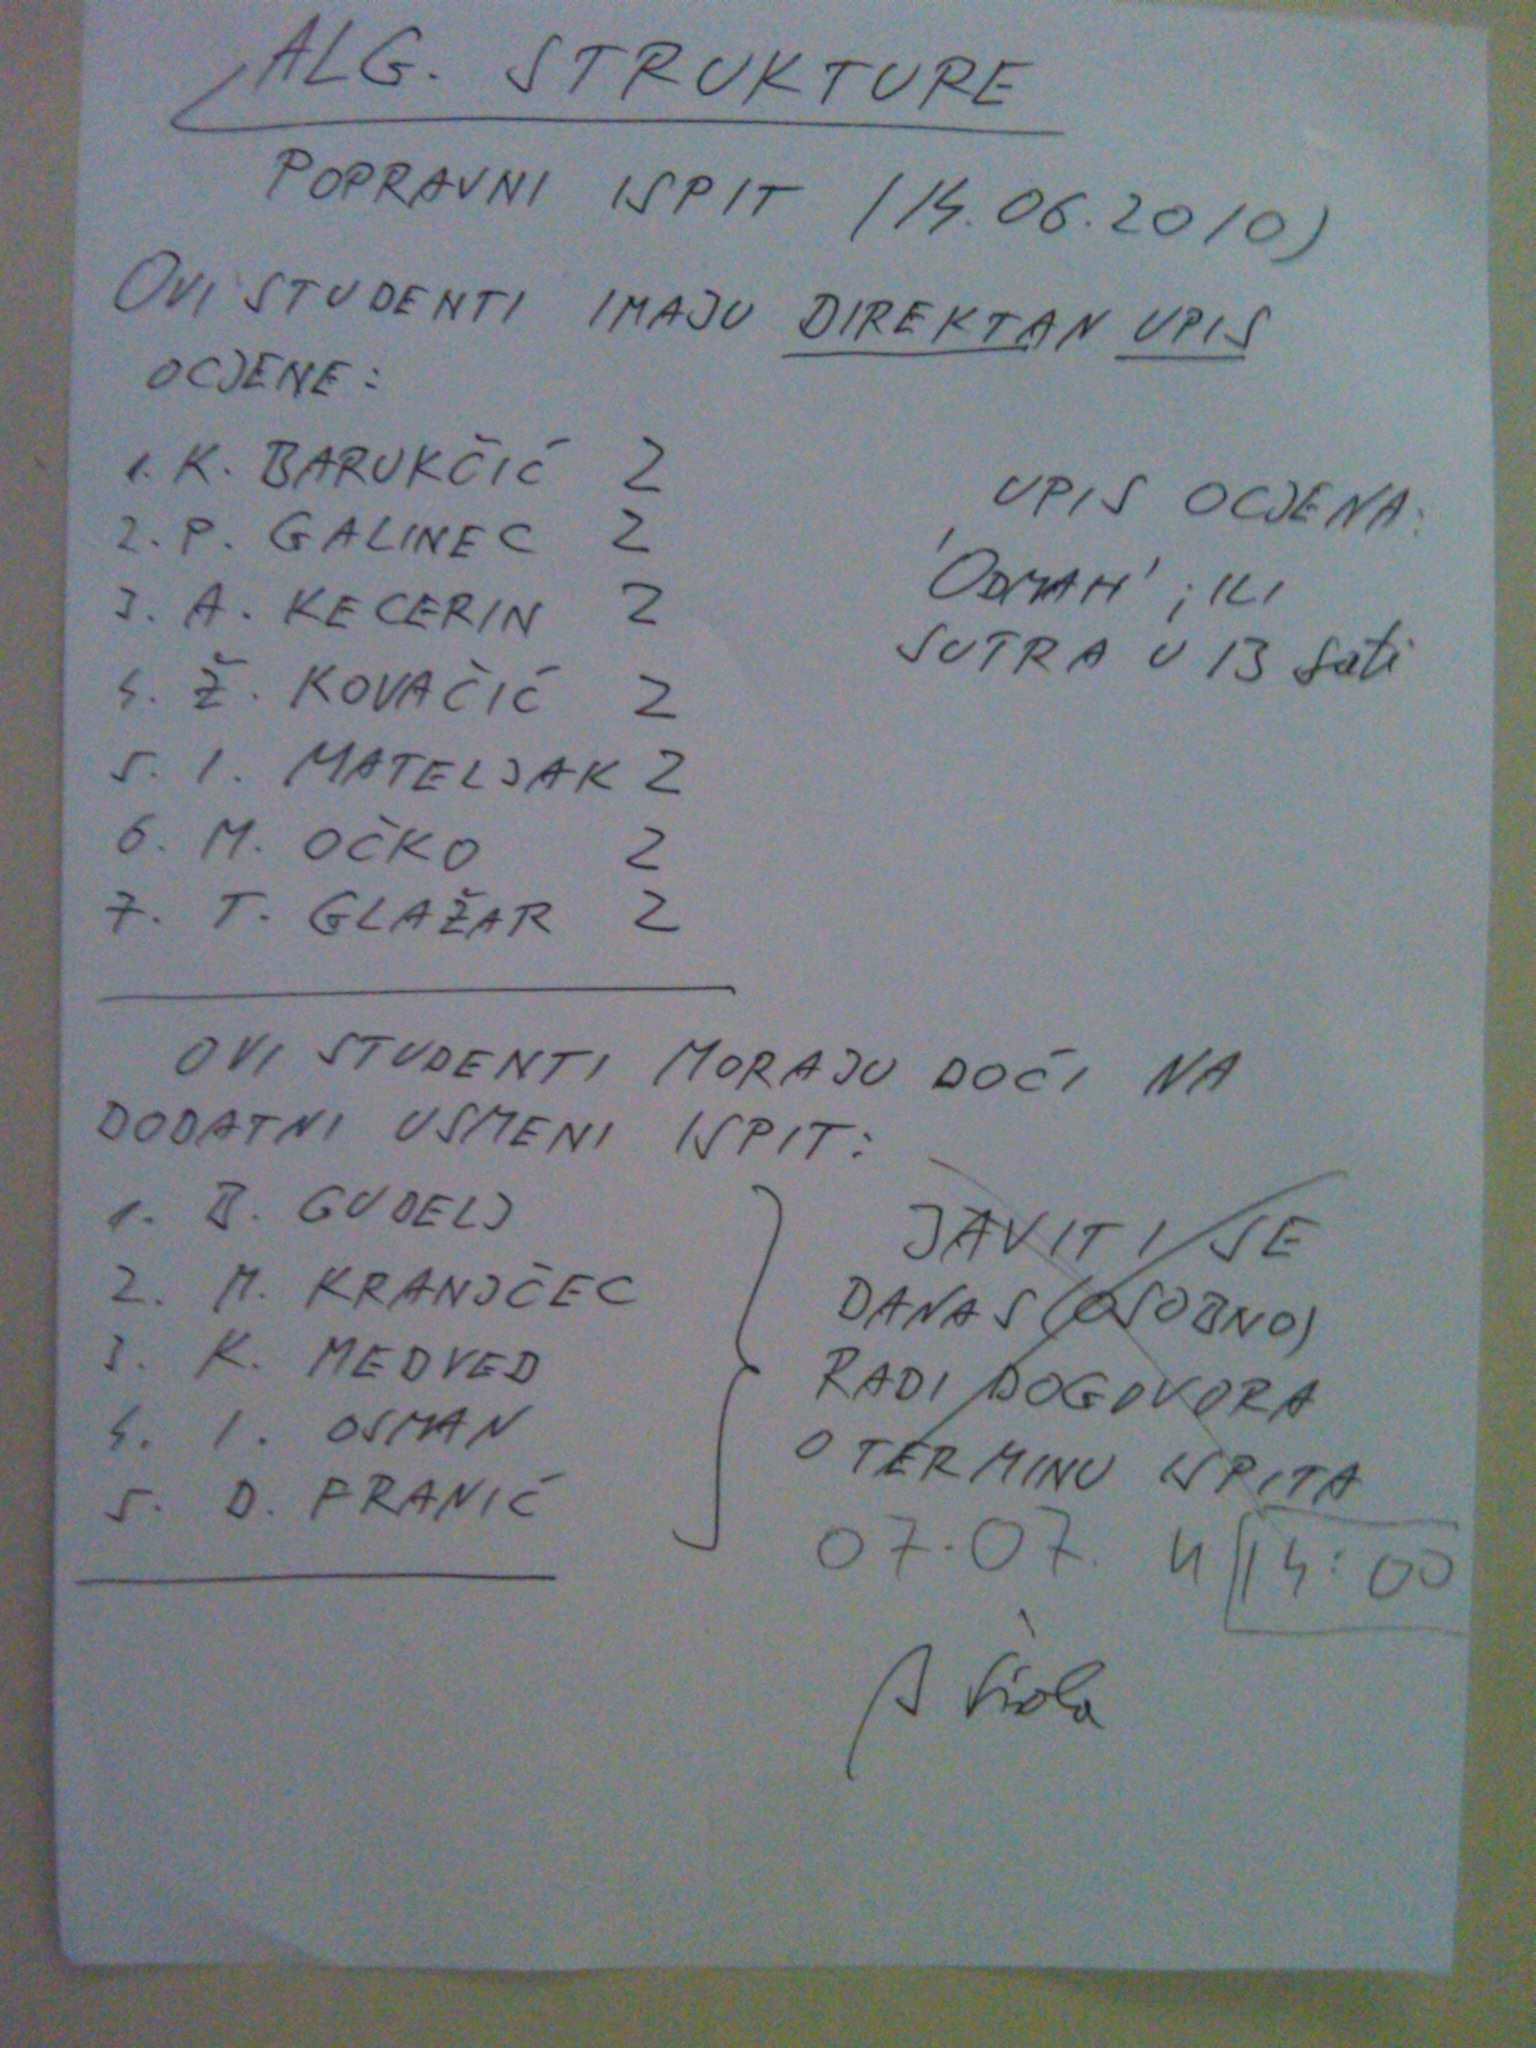 ALG. STRUKTURE
POPRAVNI ISPIT (14.06.2010)
OVI STUDENTI IMAJU DIREKTAN UPIS
OCJENE:
1. K. BARUKČIĆ 2
2. P. GALINEC 2
3. A. KECERIN 2
4. Ž. KOVAČIĆ 2
5. I. MATELJAK 2
6. M. OČKO 2
7. T. GLAŽAR 2
UPIS OCJENA:
'ODMAH'; ILI
SUTRA U 13 sati
OVI STUDENTI MORAJU DOĆI NA
DODATNI USMENI ISPIT:
1. B. GUDELJ
2. M. KRANJČEC
3. K. MEDVED
4. I. OSMAN
5. D. FRANIĆ
JAVITI SE
DANAS (OSOBNO)
RADI DOGOVORA
O TERMINU ISPITA
07.07. u 14:00